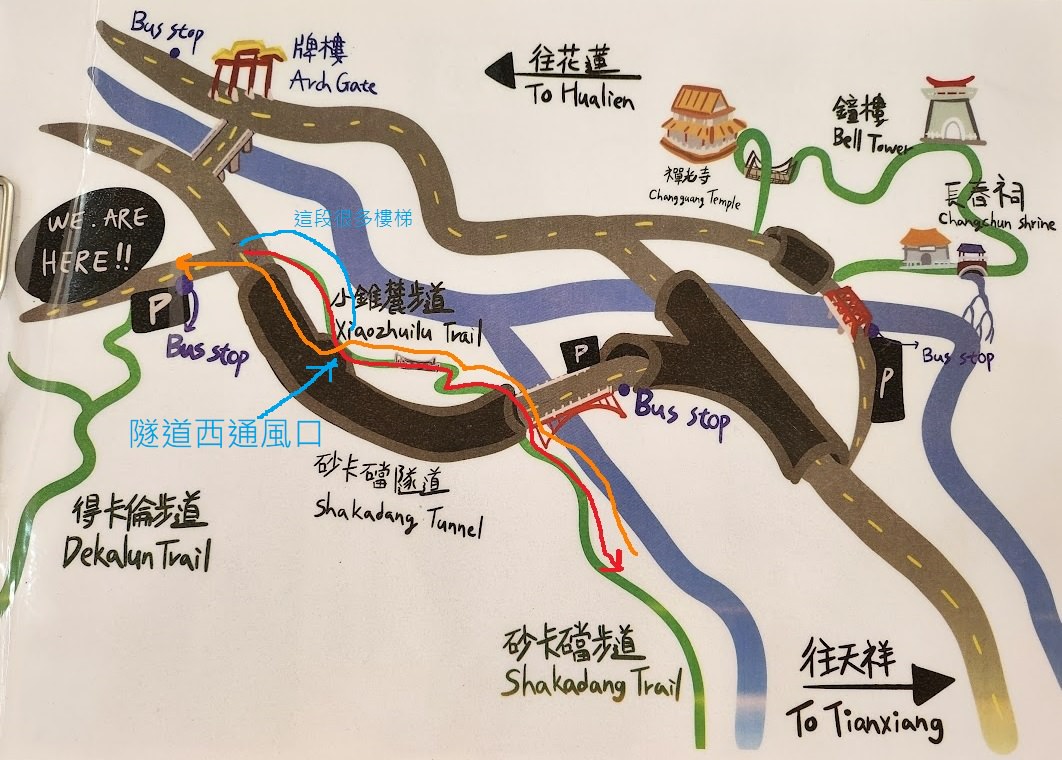 Bus stop
牌樓
Arch Gate
往花蓮
To Hualien
禪光寺
Changguang Temple
鐘樓
Bell Tower
長春祠
Changchun Shrine
WE ARE
HERE!!
這段很多樓梯
小錐麓步道
Xiaozhuilu Trail
P
Bus stop
P
Bus stop
P
Bus stop
隧道西通風口
砂卡礑隧道
Shakadang Tunnel
得卡倫步道
Dekalun Trail
砂卡礑步道
Shakadang Trail
往天祥
To Tianxiang